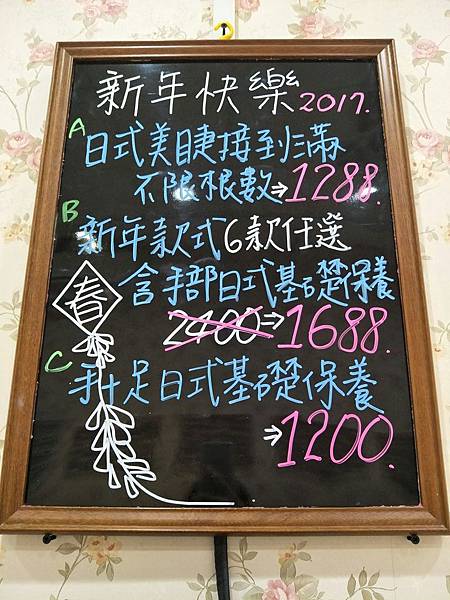 新年快樂2017.
A 日式美睫接到滿
不限根數→1288.
B 新年款式6款任選
含手部日式基礎保養
2400→1688.
C 手+足日式基礎保養
→1200.
春